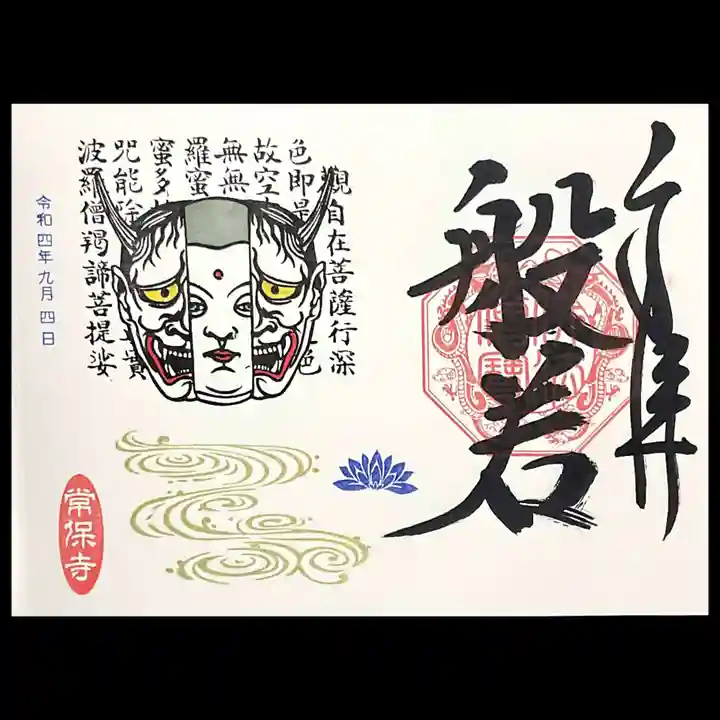 奉拝
般若
觀自在菩薩行深
色即是
故空
無無
羅蜜
蜜多
咒能除 實
波羅僧羯諦菩提娑
令和四年九月四日
常保寺